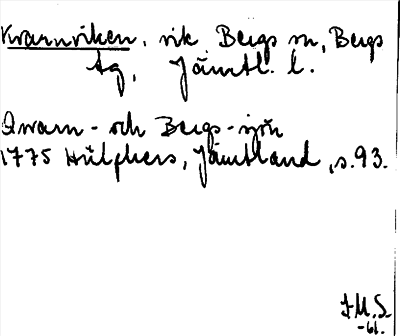 Kvarnviken, vik Bergs sn, Bergs
tg, Jämtl. l.
Qwarn- och Bergs-sjön
1775 Hülphers, Jämtland, s. 93.
I.M.S.
-61.